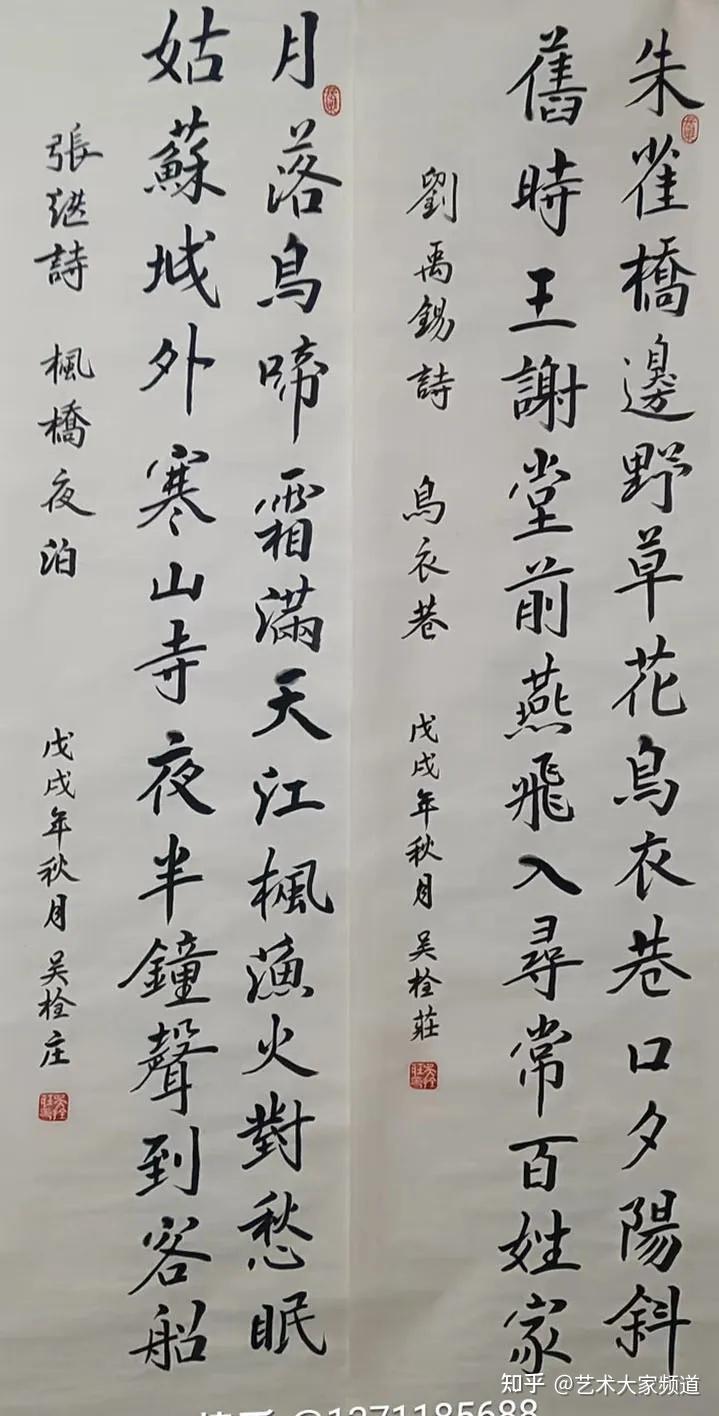 朱雀橋邊野草花烏衣巷口夕陽斜
舊時王謝堂前燕飛入尋常百姓家
劉禹錫詩 烏衣巷 戊戌年秋月 吴栓莊
月落烏啼霜滿天江楓漁火對愁眠
姑蘇城外寒山寺夜半鐘聲到客船
張継詩 楓橋夜泊 戊戌年秋月 吴栓庄
知乎 @艺术大家频道
@1371185688